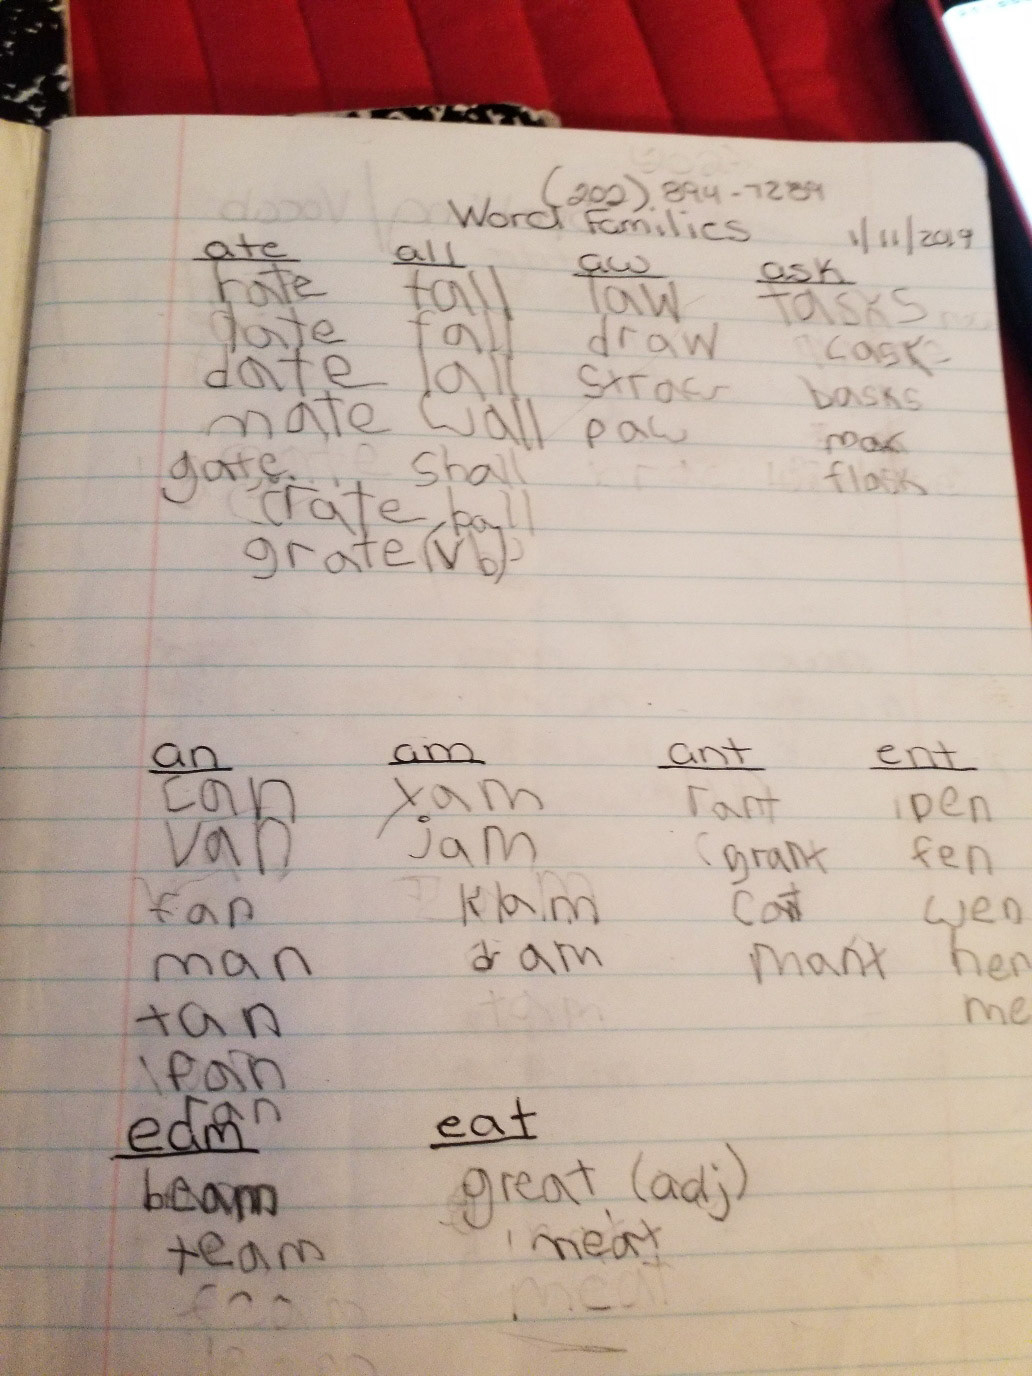 (202) 894-7289
Word Families 1/11/2019
ate all aw ask
rate tall law tasks
date fall draw cask
date lall straw basks
mate wall paw
gate shall flask
crate ball
grate (vb)
an am ant ent
can yam rant pen
van jam grant fen
fan klam wen
man dam mant hen
tan me
pan
ran
eam eat
beam great (adj)
team meat
meat